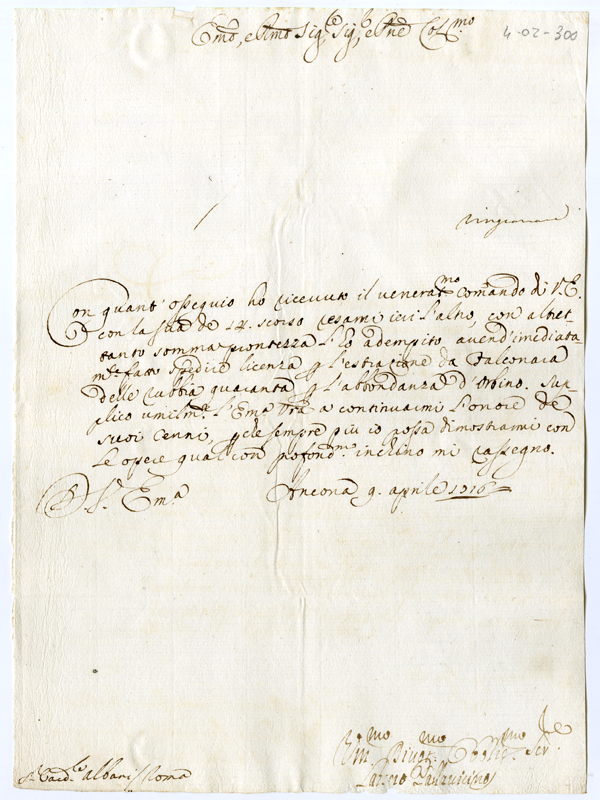 Emõ, e Rmo Sig.re Sig.re, e Pne Col.mo
4-02-300
Con quant' ossequio ho ricevuto il venerat.mo comando di V. E.
con la sua de 14. scorso resami ieri l'altro, con altret-
tanto somma prontezza l'ho adempito avend' imediata-
m.e fatto spedire licenza p l'estrazione da Falconara
delle rubbia quaranta p l'abbondanza d'Urbino. Sup-
plico umilm.e l'Emã Vrã a continuarmi l'onore de
suoi cenni, pche sempre più io possa dimostrarmi con
le opere qual con profond.mo inchino mi rassegno.
D. V. Em.a Ancona 9. aprile 1716
Um.mo Divot.mo Obblig.mo Ser.re
S.r Card.le Albani Roma